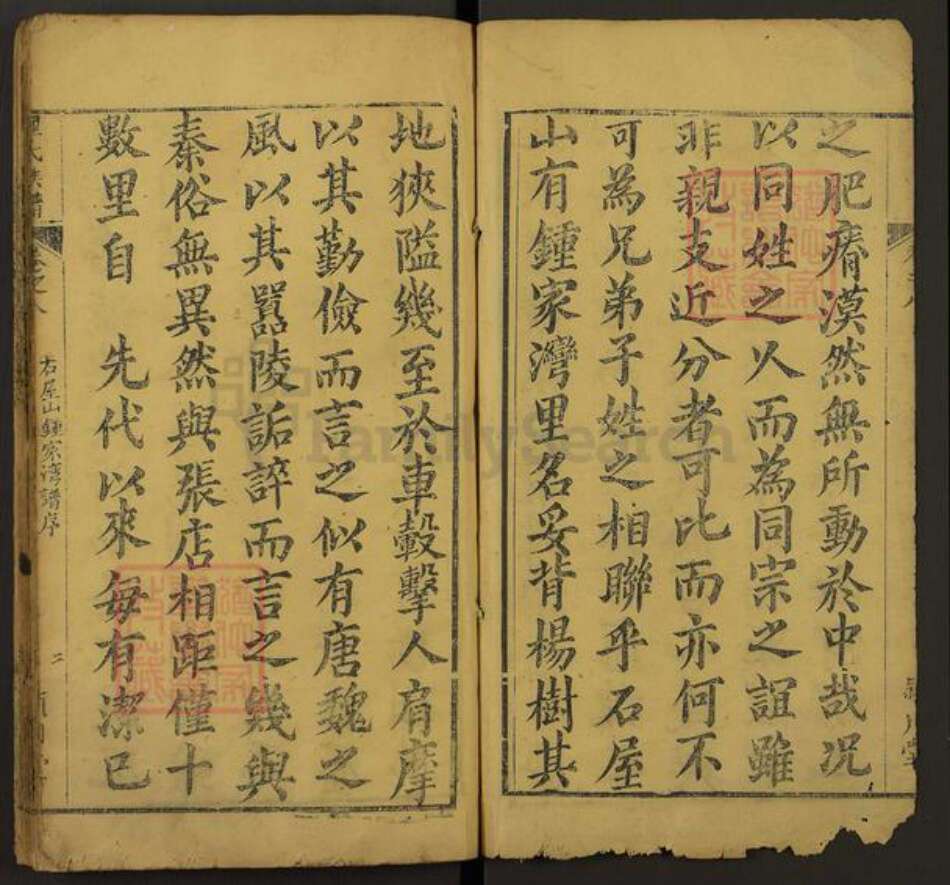 之肥瘠漠然無所動於中哉况
以同姓之人而為同宗之誼雖
非親支近分者可比而亦何不
可為兄弟子姓之相聯乎石屋
山有鍾家灣里名妥背楊樹其
地狹隘幾至於車轂擊人肩摩
以其勤儉而言之似有唐魏之
風以其囂陵詬誶而言之幾與
秦俗無異然與張店相距僅十
數里自 先代以來每有潔已
石屋山鍾家湾譜序
二
FamilySearch